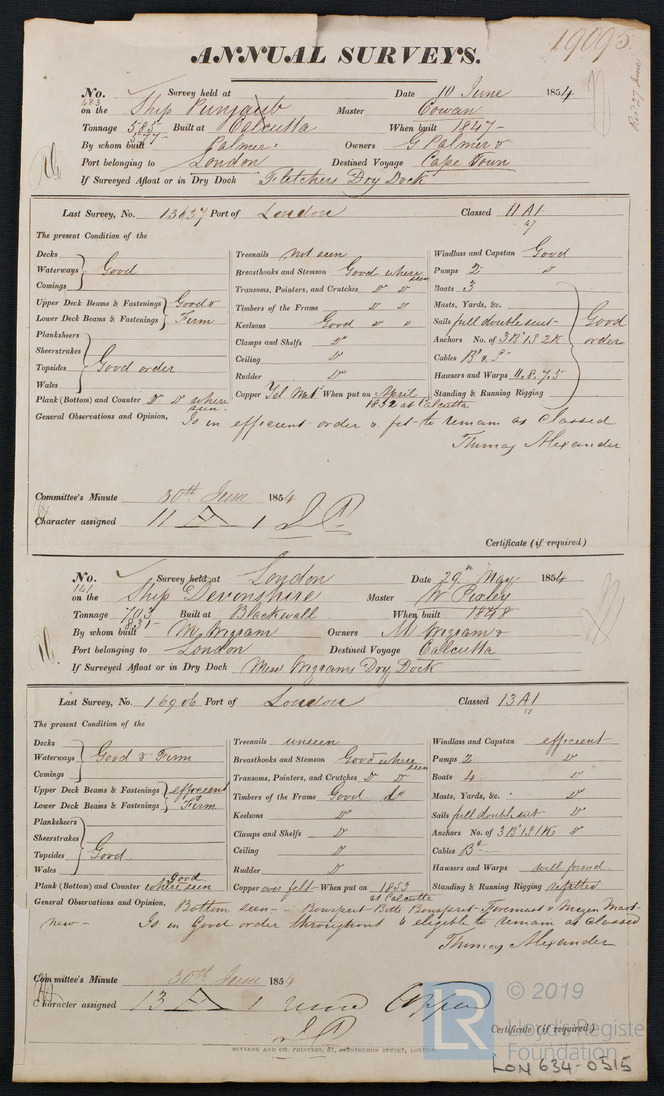 19095
ANNUAL SURVEYS.
Rec 27 June
No. 483 Survey held at Date 10 June 1854
on the Ship Punjaub Master Cowan
Tonnage 585 577 Built at Calcutta When built 1847
By whom built Palmer Owners G Palmer &
Port belonging to London Destined Voyage Cape Town
If Surveyed Afloat or in Dry Dock Fletchers Dry Dock
Last Survey, No. 13637 Port of London Classed 11 A1
47
The present Condition of the
Decks
Waterways Good
Comings
Upper Deck Beams & Fastenings Good &
Lower Deck Beams & Fastenings Firm
Planksheers
Sheerstrakes
Topsides Good order
Wales
Plank (Bottom) and Counter Do Do where seen
Treenails not seen
Breasthooks and Stemson Good where seen
Transoms, Pointers, and Crutches Do Do
Timbers of the Frame Do Do
Keelsons Good Do Do
Clamps and Shelfs Do
Ceiling Do
Rudder Do
Copper Yel Metl When put on April 1852 at Calcutta
Windlass and Capstan Good
Pumps 2 Do
Boats 3
Masts, Yards, &c.
Sails full double suit
Anchors No. of 3 Br 1 S 2 K
Cables Br & Pr
Hawsers and Warps 11.8.7.5
Standing & Running Rigging
Good order
General Observations and Opinion, Is in efficient order & fit to remain as classed
Thomas Alexander
Committee's Minute 30th June 1854
Character assigned 11 A 1
Certificate (if required)
No. 141 Survey held at London Date 29th May 1854
on the Ship Devonshire Master W Pixley
Tonnage 703 831 Built at Blackwall When built 1848
By whom built M Wigram Owners M Wigram &
Port belonging to London Destined Voyage Calcutta
If Surveyed Afloat or in Dry Dock Messrs Wigrams Dry Dock
Last Survey, No. 16906 Port of London Classed 13 A1
The present Condition of the
Decks
Waterways Good & Firm
Comings
Upper Deck Beams & Fastenings efficient
Lower Deck Beams & Fastenings & Firm
Planksheers
Sheerstrakes
Topsides Good
Wales
Plank (Bottom) and Counter Good where seen
Treenails unseen
Breasthooks and Stemson Good where seen
Transoms, Pointers, and Crutches Do Do
Timbers of the Frame Good do
Keelsons Do
Clamps and Shelfs Do
Ceiling Do
Rudder Do
Copper over felt When put on 1853 at Calcutta
Windlass and Capstan efficient
Pumps 2 Do
Boats 4 Do
Masts, Yards, &c. Do
Sails full double suit Do
Anchors No. of 3 Br 1 S 1 Ke Do
Cables Br
Hawsers and Warps well found
Standing & Running Rigging refitted
General Observations and Opinion, Bottom seen - Bowsprit Bitts Bowsprit Foremast & Mizen Mast
new - Is in Good order throughout & eligible to remain as classed
Thomas Alexander
Committee's Minute 30th June 1854
Character assigned 13 A 1 Copper
Certificate (if required)
SEYFANG AND CO. PRINTERS, 57, FARRINGDON STREET, LONDON.
LR © 2019
Lloyd's Register
Foundation
LON 634-0515